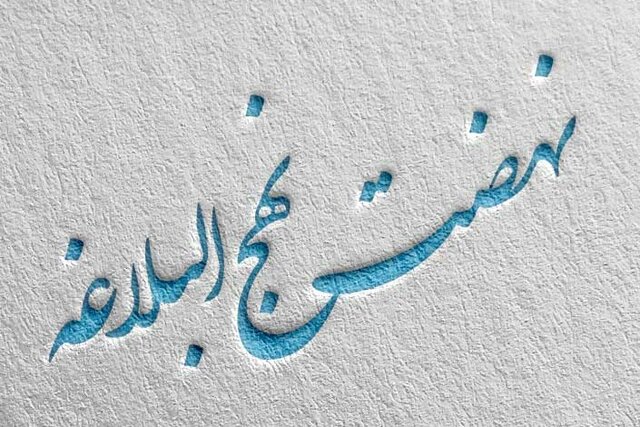 نهضت نهج البلاغه